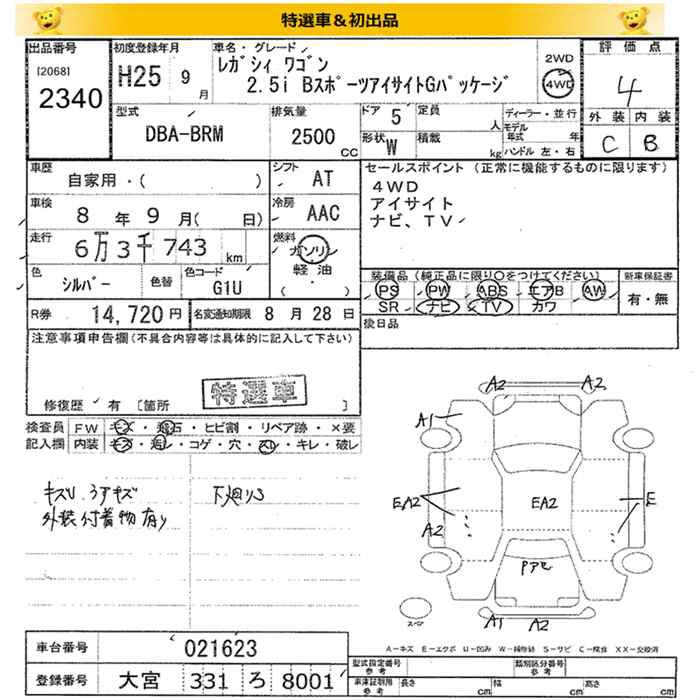 特選車＆初出品
出品番号
[2068]
2340
初度登録年月
H25 9月
車名・グレード
レガシィ ワゴン
2.5i BスポーツアイサイトGパッケージ
2WD
4WD
評価点
4
外装 内装
C B
型式
DBA-BRM
排気量
2500 CC
ドア 5
定員 人
形状 W
積載 kg
ディーラー・並行
モデル年式 年
ハンドル 左・右
車歴
自家用・( )
シフト AT
車検
8年 9月( 日)
冷房 AAC
走行
6万3千743 km
燃料
ガソリン
軽油
( ・ )
色
シルバー
色替
色コード
G1U
R券 14,720円
名変通知期限 8月28日
セールスポイント (正常に機能するものに限ります)
4WD
アイサイト
ナビ、TV
装備品 (純正品に限り○をつけてください)
PS PW ABS エアB AW
SR ナビ TV カワ
新車保証書
有・無
後日品
注意事項申告欄 (不具合内容等は具体的に記入して下さい)
特選車
修復歴 有 [箇所 ]
検査員 FW キズ・飛石・ヒビ割・リペア跡・×要
記入欄 内装 キズ・汚レ・コゲ・穴・スレ・キレ・破レ
キズU、うすキズ
外装付着物有り
下廻りS
A2 A2
A1
EA2
A2
EA2
E
Pアセ
A1 A2
スペア
A－キズ E－エクボ U－凹み W－補修跡 S－サビ C－腐食 XX－交換済
車台番号 021623
登録番号 大宮 331 ろ 8001
型式指定番号
参考
類別区分番号
参考
車庫証明用
参考
長さ cm 幅 cm 高さ cm